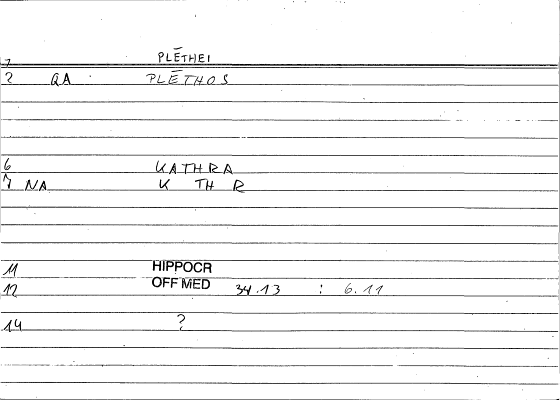 PLĒTHEI
1
2 QA PLĒTHOS
6 KATHRA
7 NA K TH R
11 HIPPOCR
12 OFF MED 34.13 : 6.11
14 ?